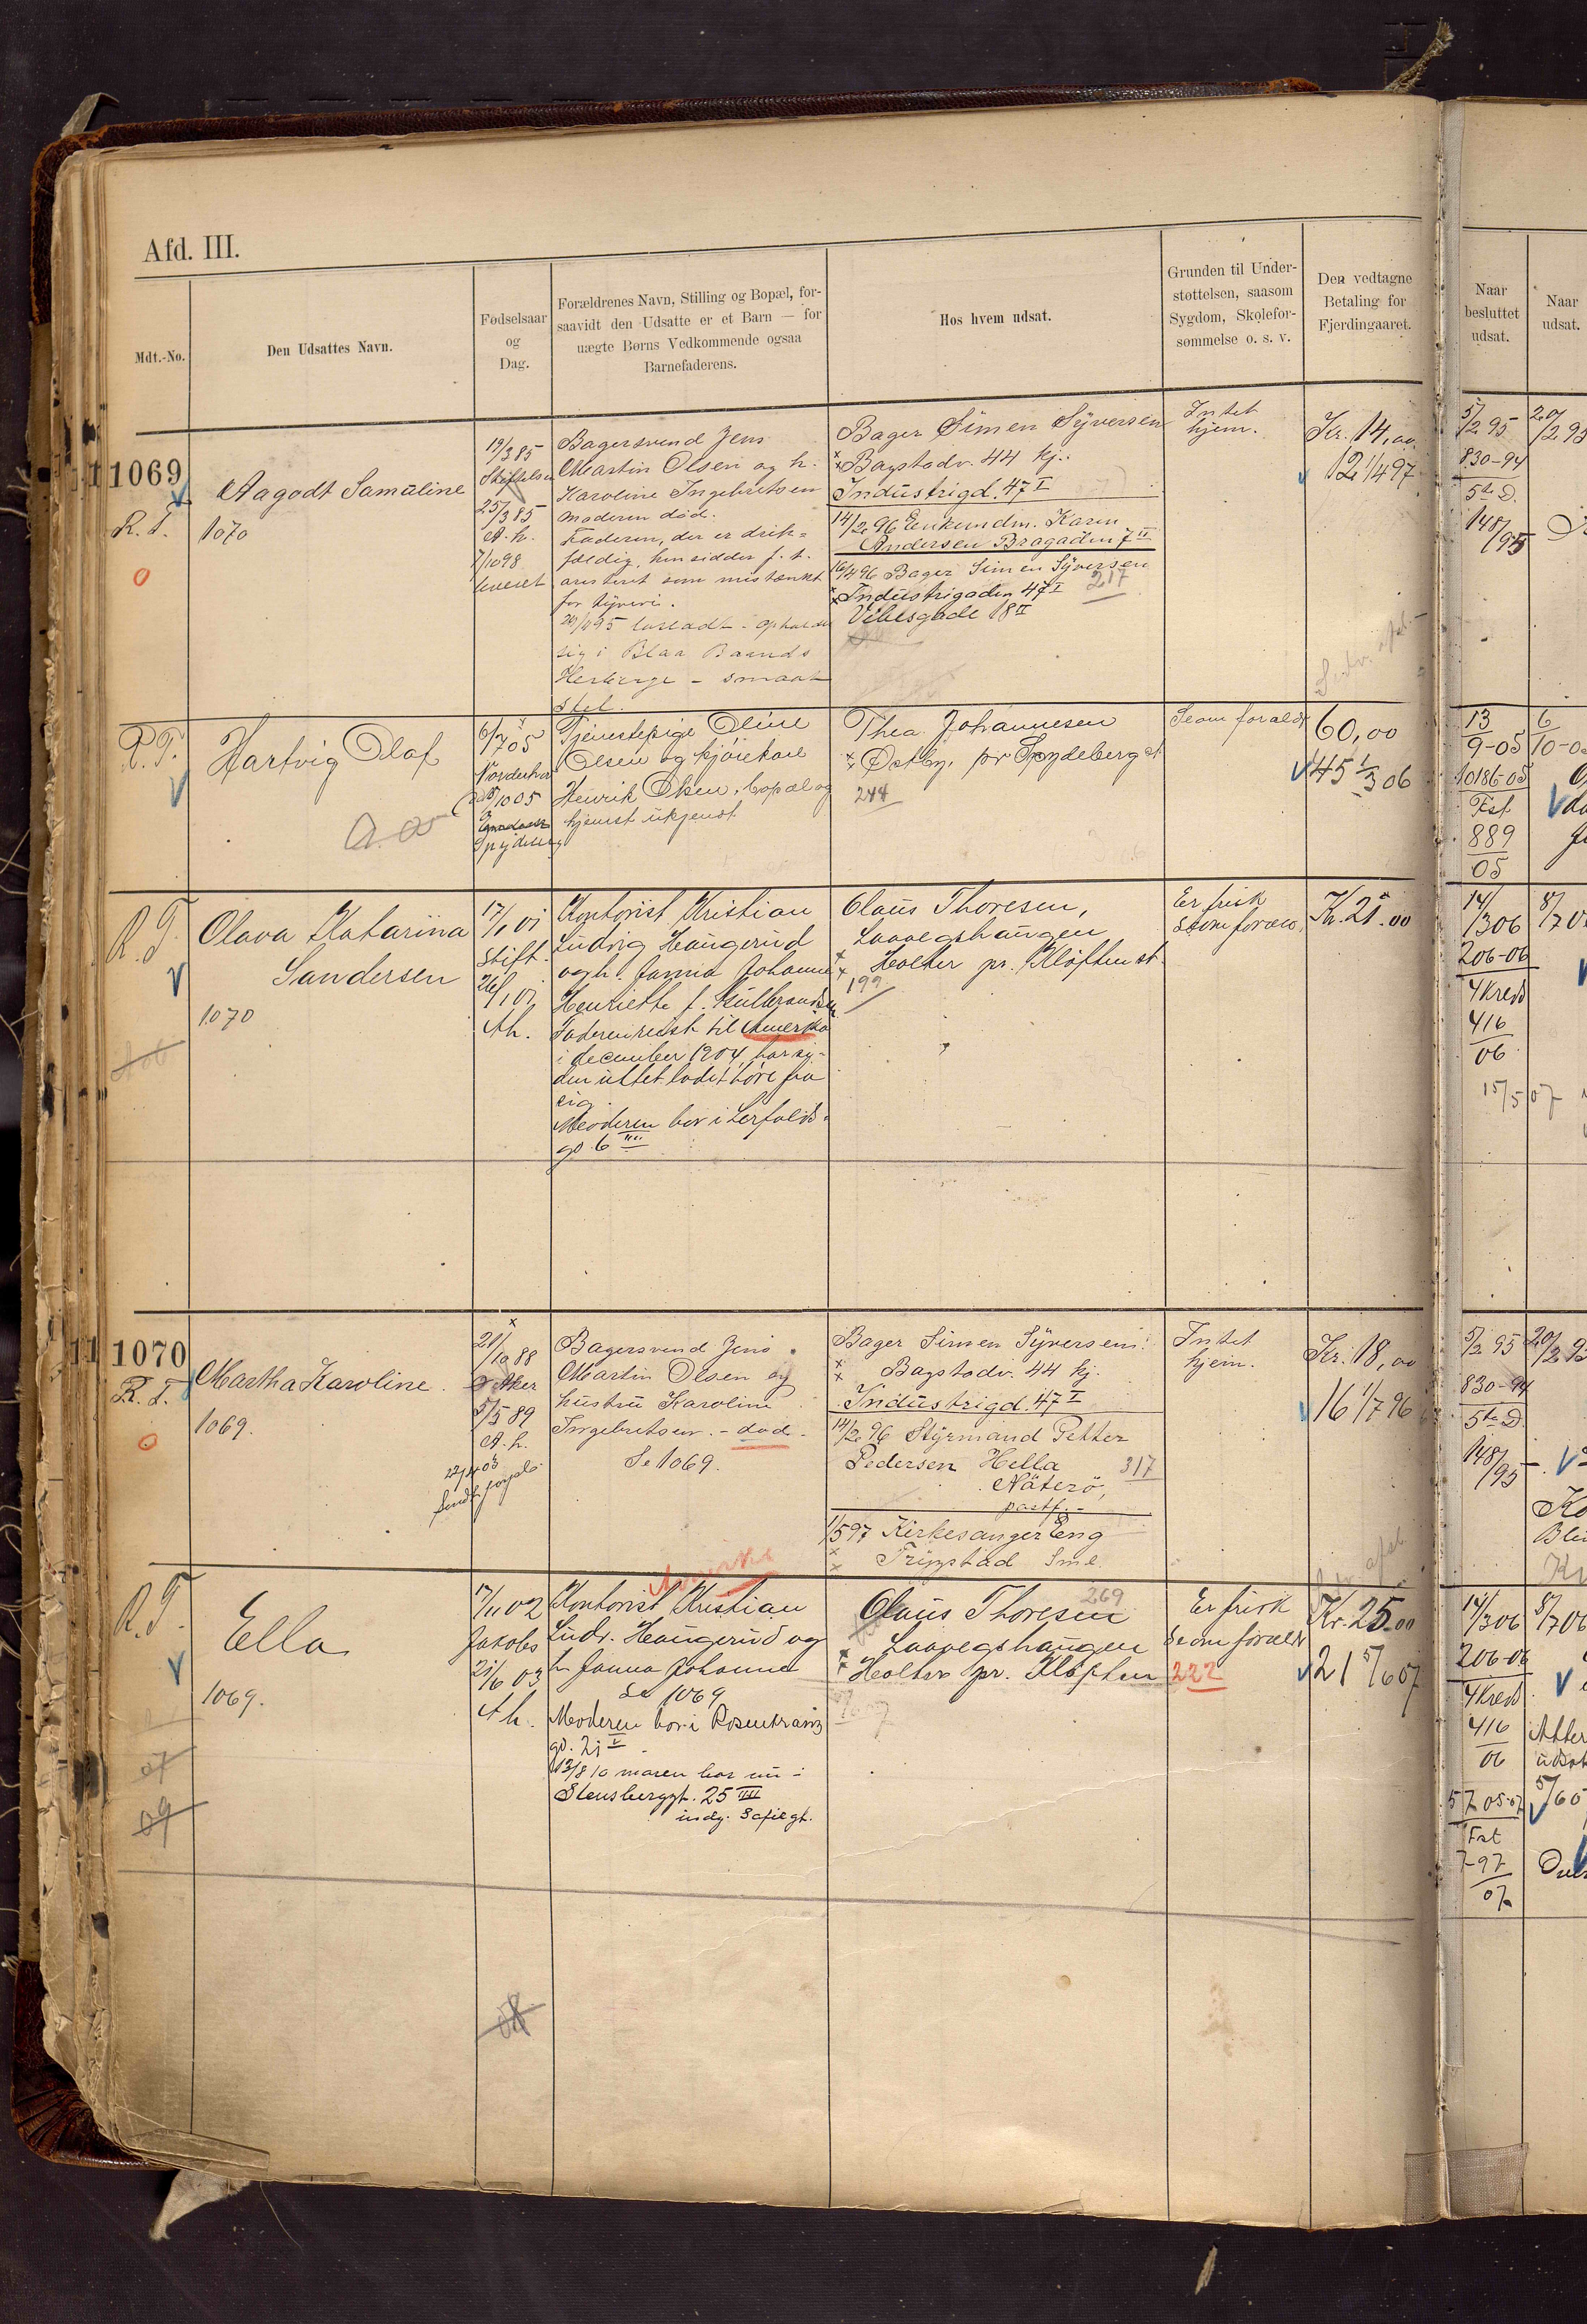 Afd. III.
Mdt.-No.
Den Udsattes Navn.
Fødselsaar
og
Dag.
Forældrenes Navn, Stilling og Bopæl, for-
saavidt den Udsatte er et Barn — for
uægte Børns Vedkommende ogsaa
Barnefaderens.
Hos hvem udsat.
Grunden til Under-
støttelsen, saasom
Sygdom, Skolefor-
sømmelse o. s. v.
Den vedtagne
Betaling for
Fjerdingaaret.
Naar
besluttet
udsat.
Naar
udsat.
1069
R. T.
Aagodt Samuline
1070
19/3 85
Stiftelsen
25/3 85
A. h.
7/10 98
Bagersvend Jens
Martin Olsen og h.
Karoline Ingebretsen
Moderen død.
Faderen, der er drik=
fældig, hensidder f. t.
arresteret som mistænkt
for tyveri.
20/4 95 løsladt - opholder
sig i Blaa Baands
Herberge - smaat
stel.
Bager Simen Syversen
Bagstadv. 44 kj.
Industrigd. 47 I
14/2 96 Enkemdm. Karen
Andersen Bragaden 7 II
16/4 96 Bager Simen Syversen
Industrigaden 47 I
217
Vibesgade 18 II
Intet
hjem.
Kr. 14,00
12 1/4 97
5/2 95
830-94
5te D.
148/95
20/2 95
R. T.
Hartvig Olaf
6/7 05
Spydeberg
Tjenestepige Oline
Olsen og kjørekarl
Henrik Olsen, bopæl og
hjemst ukjendt
Thea Johannesen
Østby, pr Spydeberg st
244
Se om forældr
60,00
45 1/3 06
13/9-05
10186-05
Fst
889
05
6
10-0
R. T.
Olava Katarina
Sandersen
1070
17/1 01
Stift.
26/1 01
Ah.
Kontorist Kristian
Ludvig Haugerud
og h. Janna Johanne
Henriette f. Gulbrandsen
Faderen reist til Amerika
i december 1904, har si-
den intet ladet høre fra
sig.
Moderen bor i Lerfalds-
gd. 6 III
Claus Thoresen,
Laavegshaugen
Holter pr. Kløften st.
199
Er frisk
Se om foræld.
Kr. 25.00
14/3 06
206-06
4 Kreds
416
06
15/5 07
8/7 06
1070
R. T.
Martha Karoline.
1069.
21/10 88
V. Aker
5/5 89
A. h.
22/4 03
Bagersvend Jens
Martin Olsen og
hustru Karoline
Ingebretsen. - død.
Se 1069.
Bager Simen Syversen
Bagstadv. 44 kj.
Industrigd. 47 I
14/2 96 Styrmand Petter
Pedersen Hella
317
Nøterø,
postf.
1/5 97 Kirkesanger Eng
Trygstad Sml.
Intet
hjem.
Kr. 18,00
16 1/7 96
5/2 95
830-94
5te D.
148/95
20/2 95
R. T.
Ella
1069.
07
09
17/11 02
Jakobs
21/6 03
Ah.
Amerika
Kontorist Kristian
Ludv. Haugerud og
h. Janna Johanne
Se 1069
Moderen bor i Rosenkranz
gd. 21 V
13/8 10 moren bor nu i
Stensberggt. 25 III
indg. Sofiegt.
269
Claus Thoresen
Laavegshaugen
Holter pr. Kløften
222
Er frisk
Se om forældr
Kr. 25.00
21 5/6 07
14/3 06
206-06
4 Kreds
416
06
Fst
797
07
8/7 06